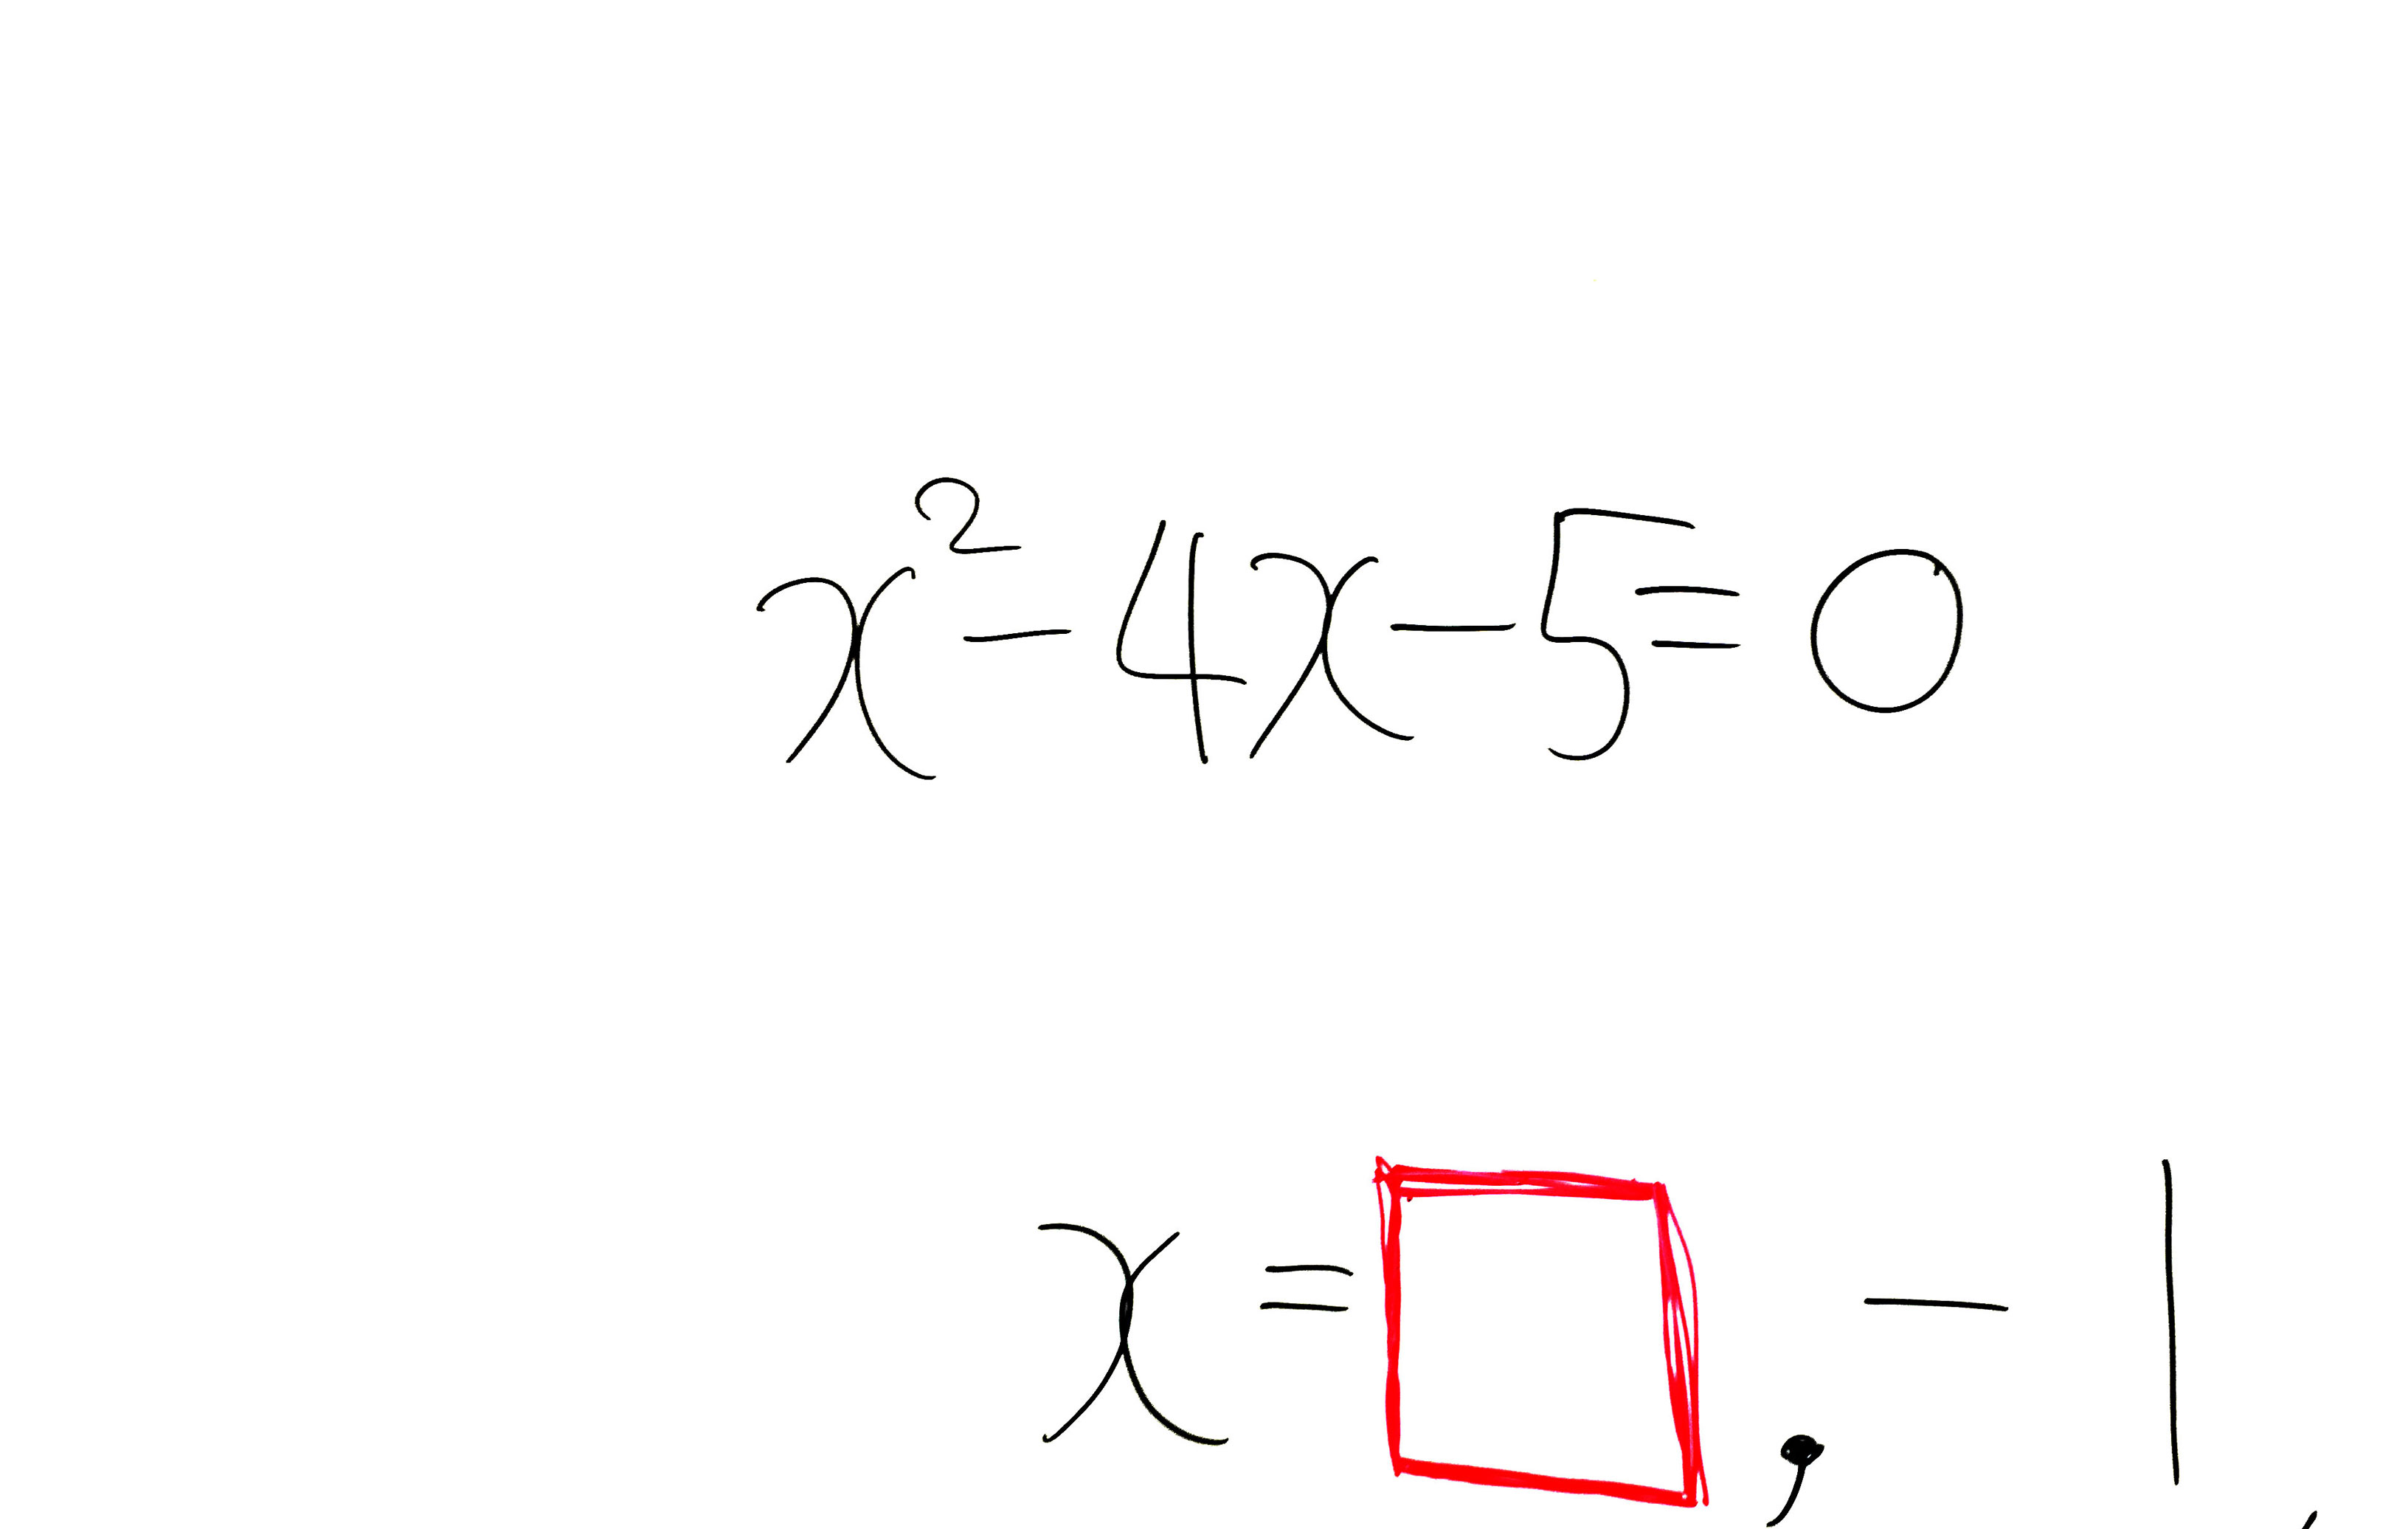 x² - 4x - 5 = 0
x = □, -1